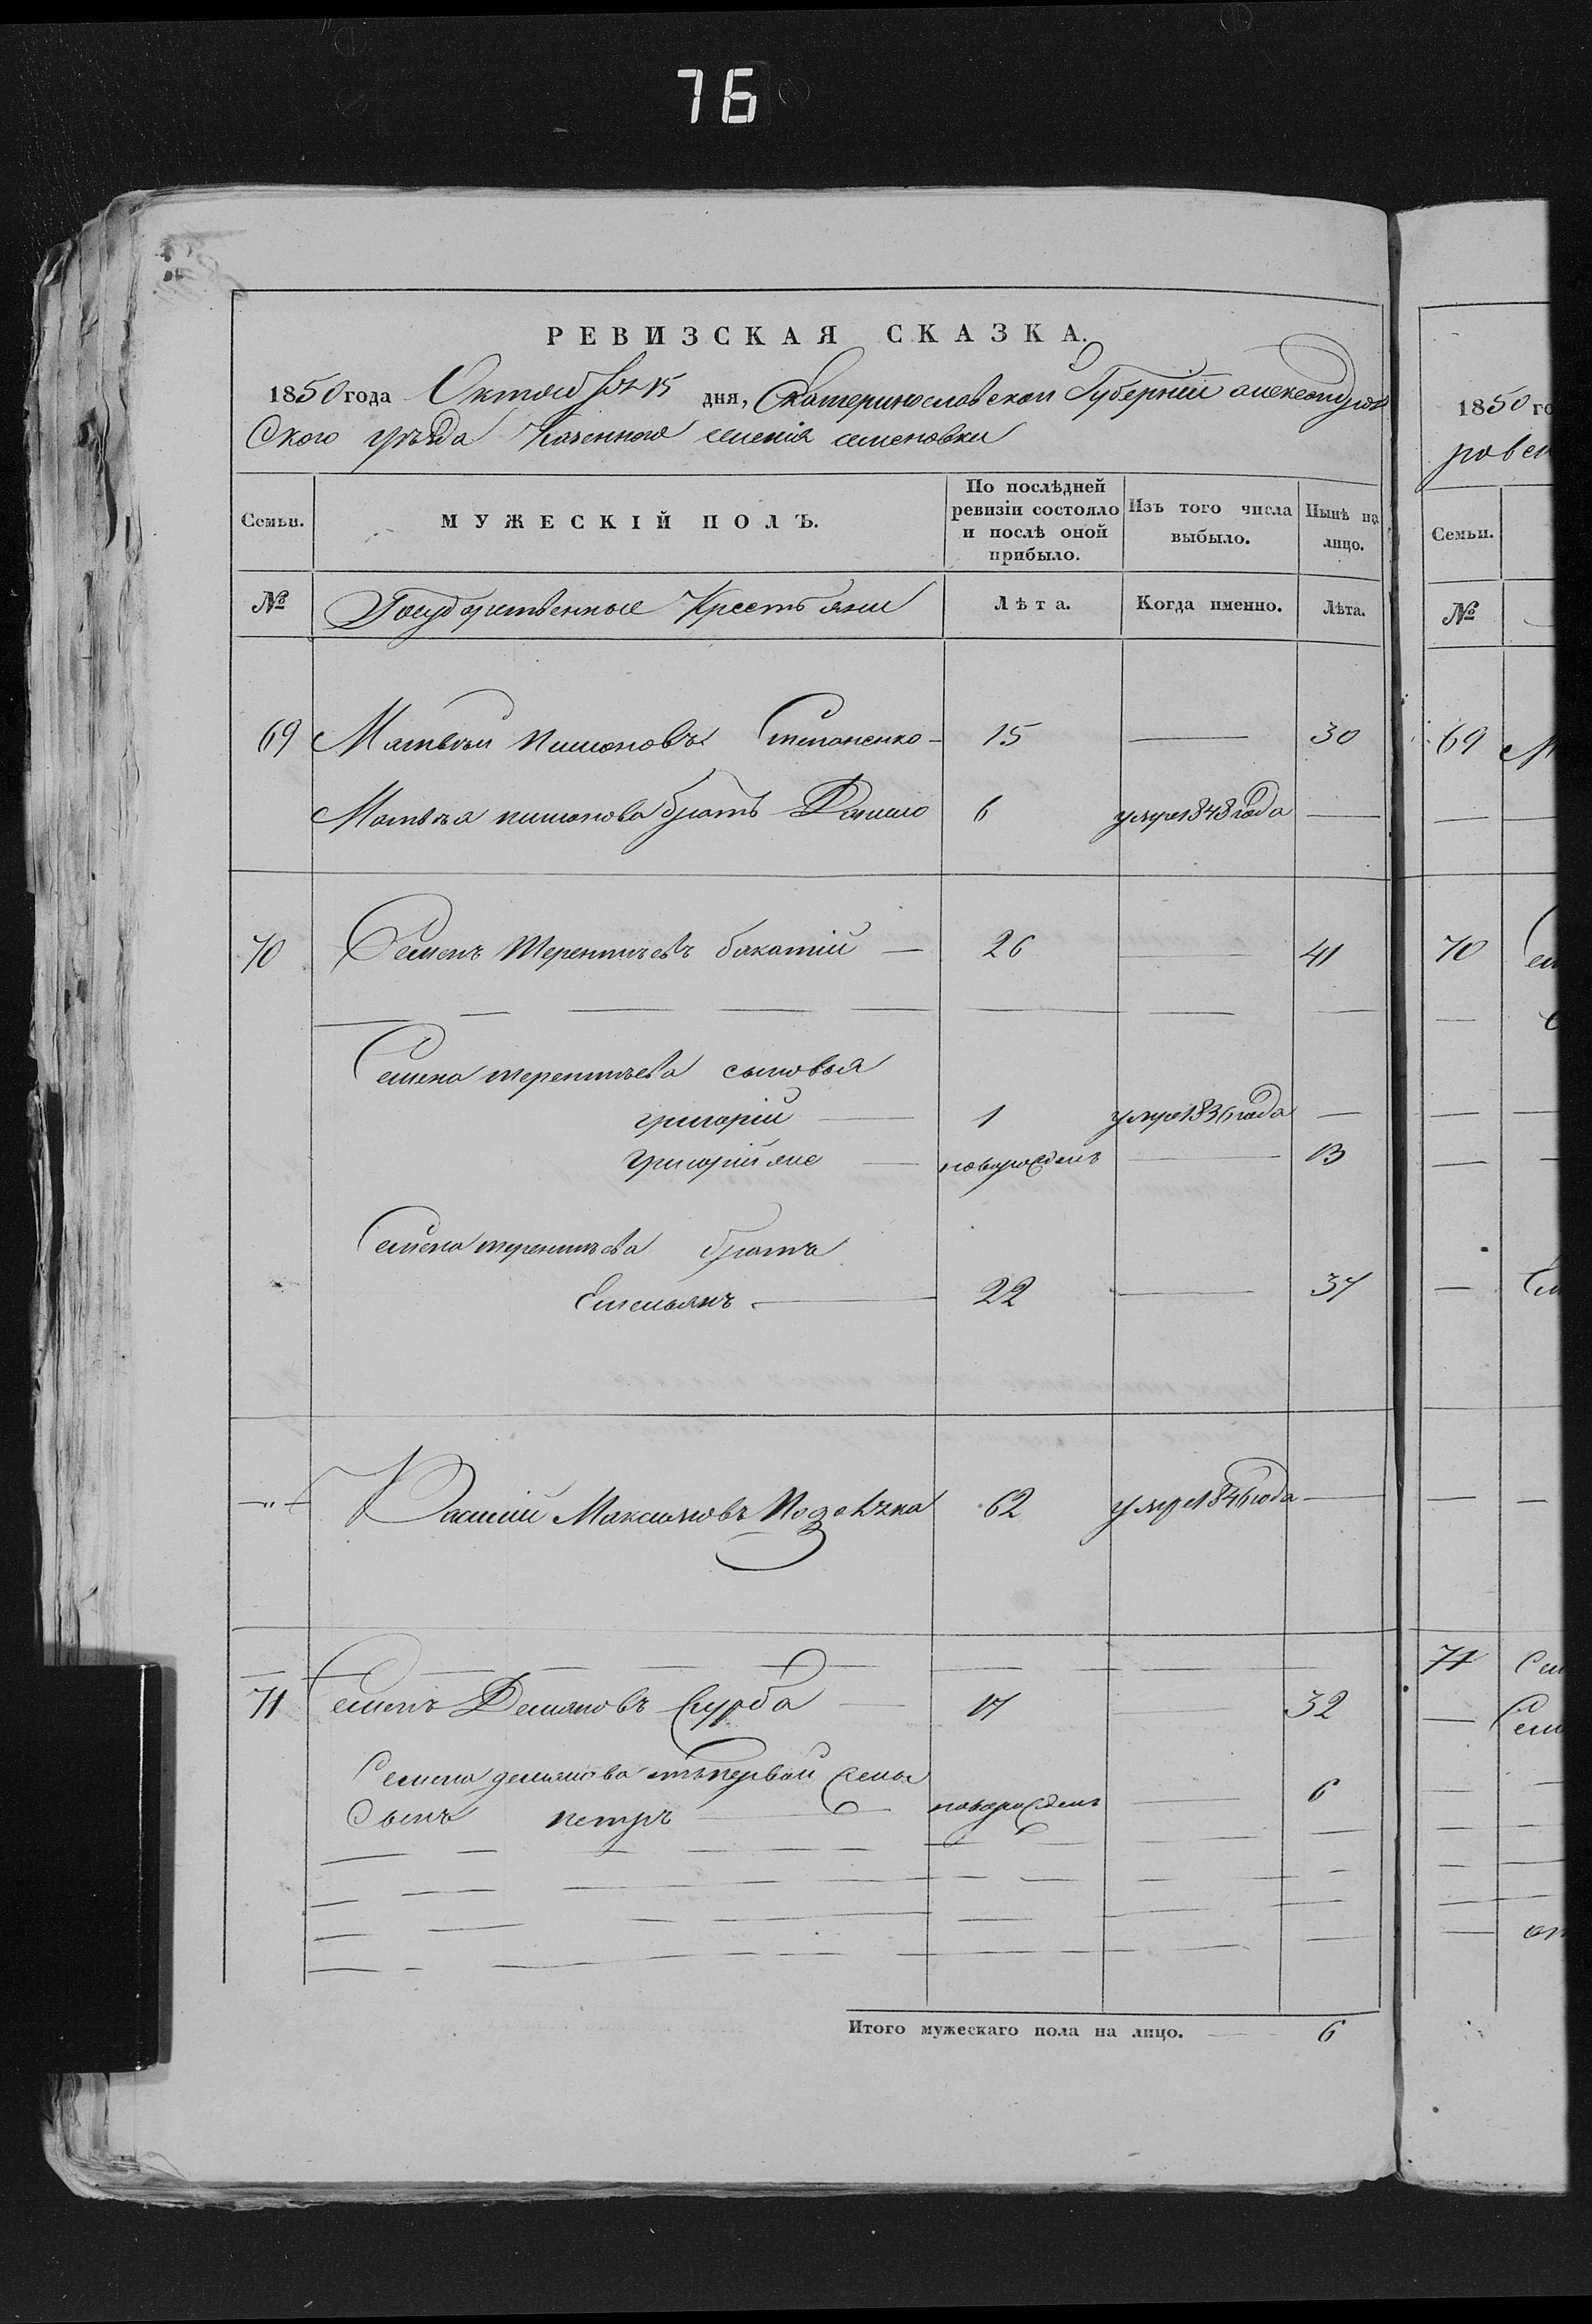 76
РЕВИЗСКАЯ СКАЗКА.
1850 года Октября 15 дня, Екатеринославской Губерніи александров
Ского уѣзда Казенного селенія семеновки
Семьи. МУЖЕСКІЙ ПОЛЪ. По послѣдней ревизіи состояло и послѣ оной прибыло. Изъ того числа выбыло. Нынѣ на лицо.
№ Государственные Крестьяни Лѣта. Когда именно. Лѣта.
69 Матвѣй пимоновъ Степаненко - 15 — 30
Матвѣя пимонова братъ Данило 6 умре 1848 года —
70 Семенъ Терентьевъ бакатій — 26 — 41
Семена терентьева сыновья
григорій — 1 умре 1836 года —
Григорій же — новорожденъ — 13
Семена терентьева братъ
Емельянъ — 22 — 37
—"— Василій Максимовъ 62 умре 1846 года —
71 Семенъ Демяновъ Скурба — 17 — 32
Семена демянова отъ первой жены
Сынъ петръ — новорожденъ — 6
Итого мужескаго пола на лицо. — 6
1850 го
ровск
Семьи.
№
69 М
70
71 Сем
Сем